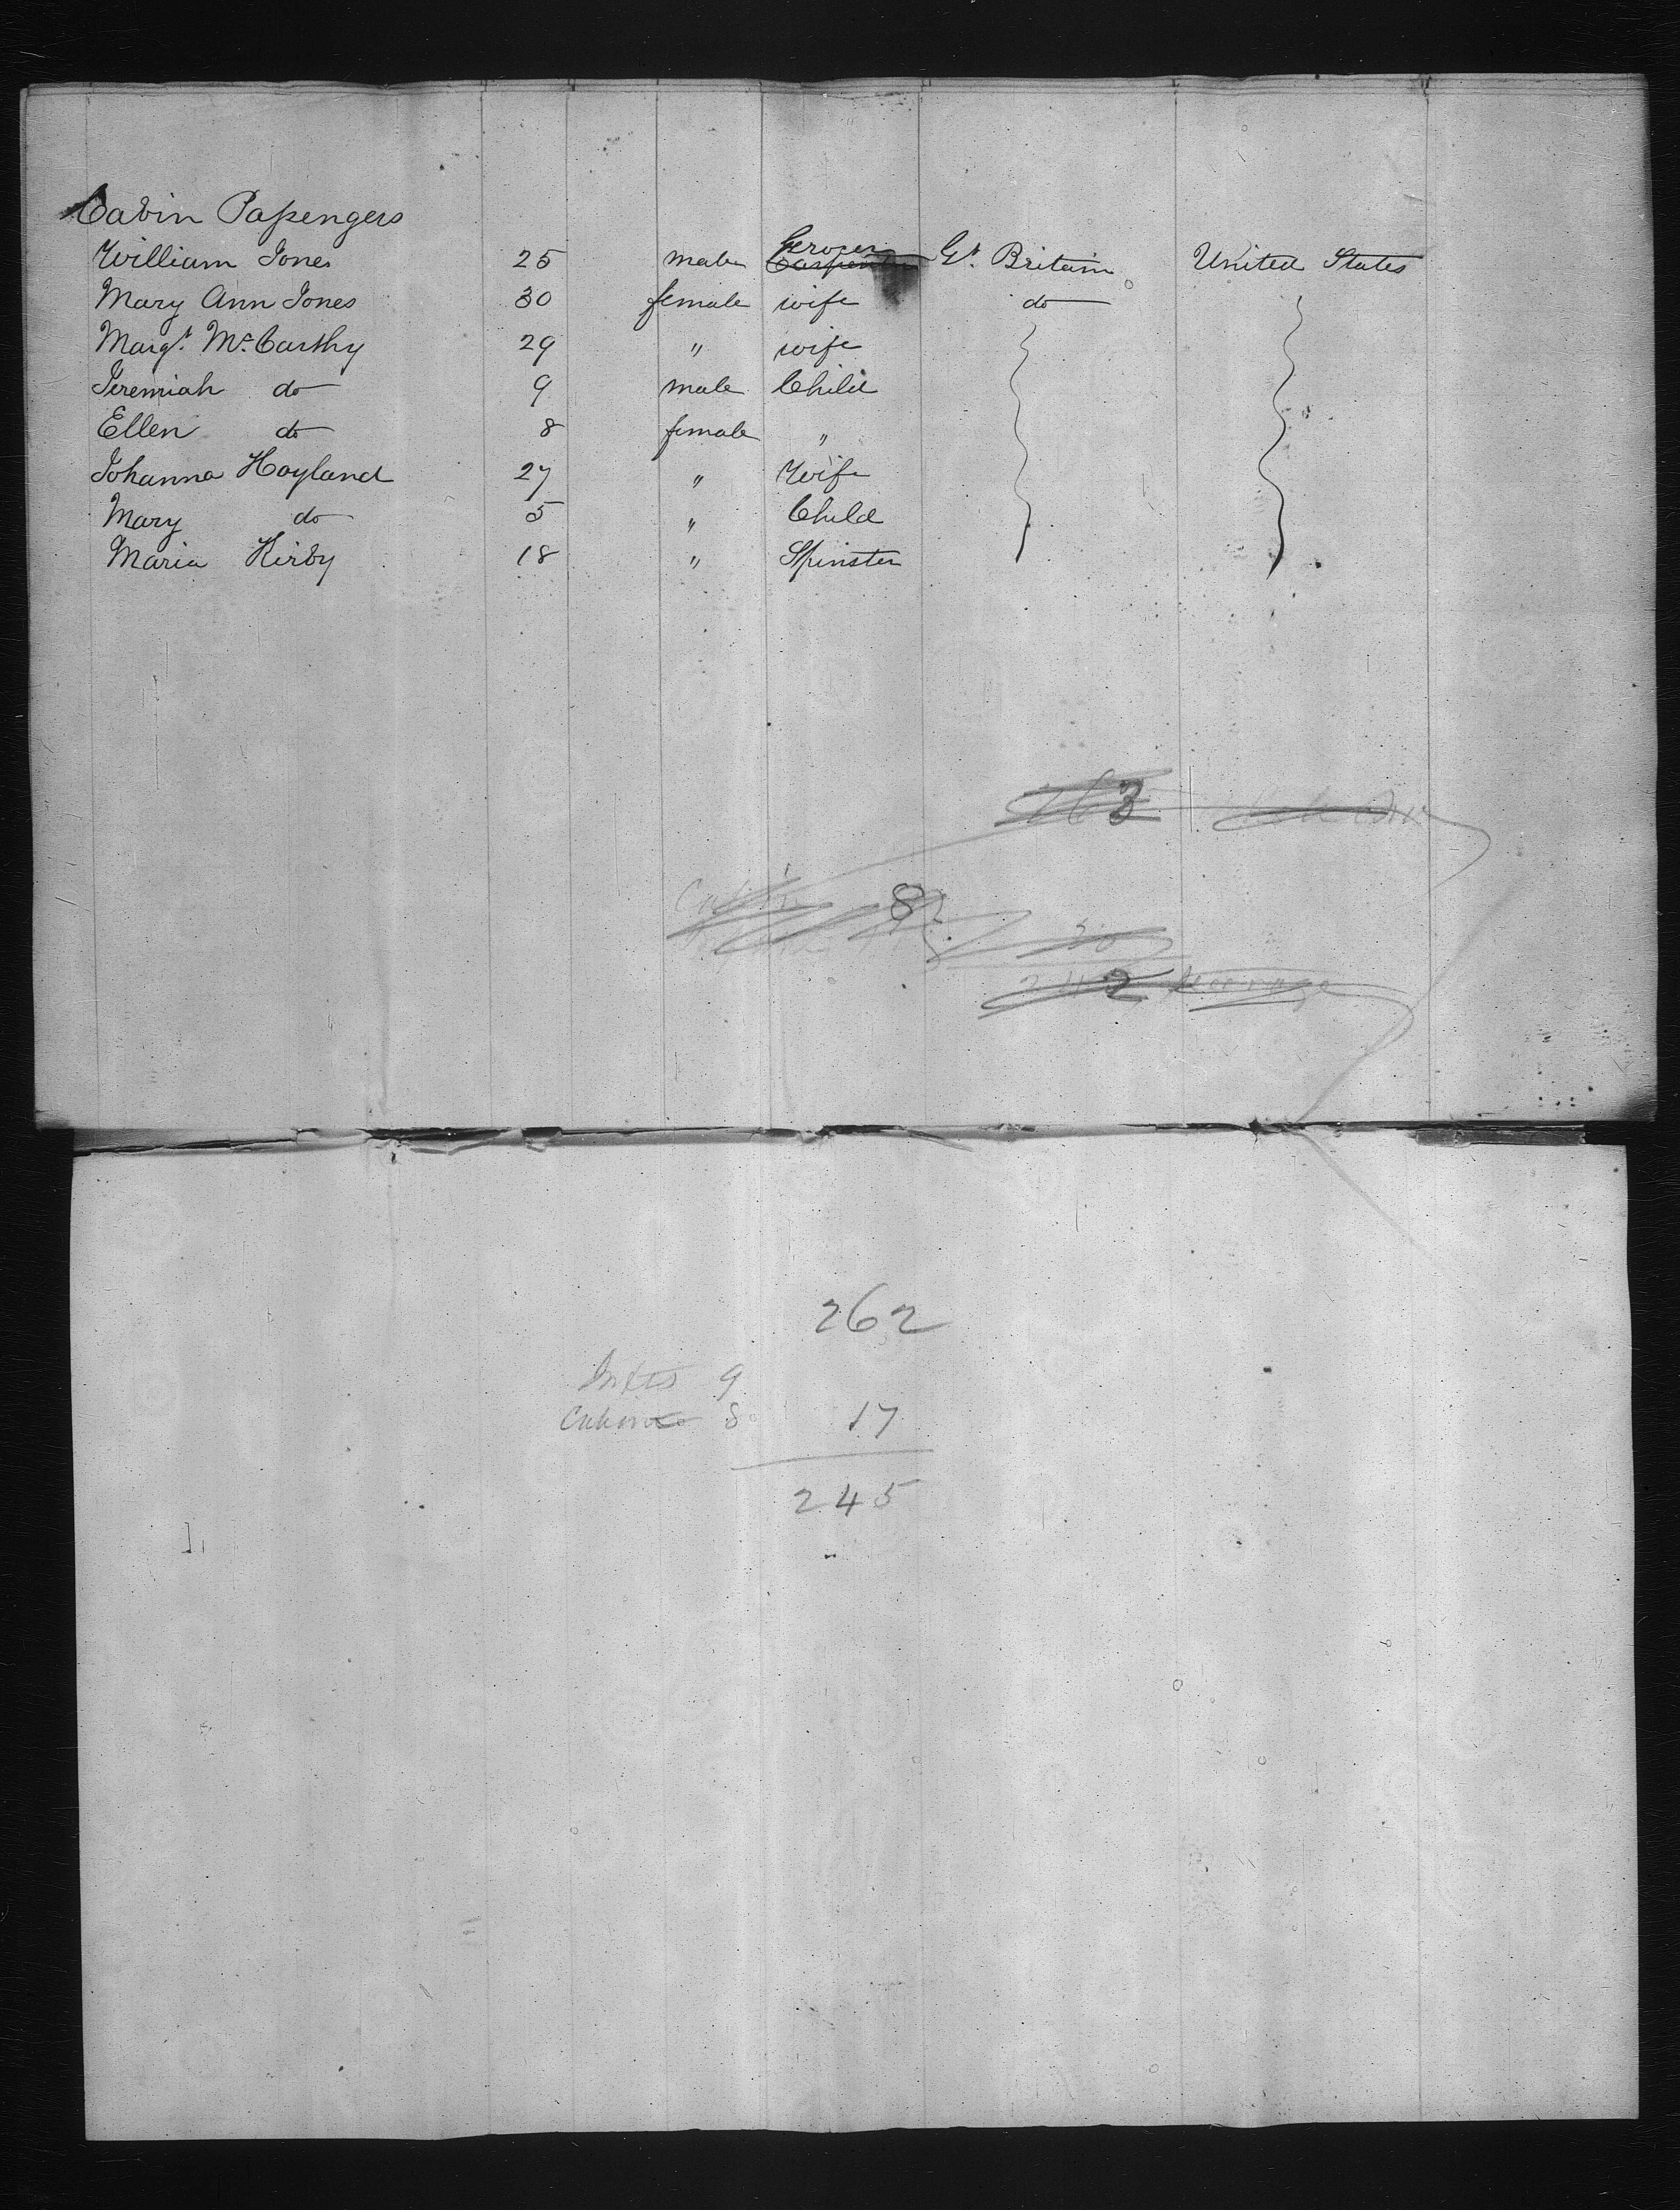 Cabin Passengers
William Jones 25 male Grocer Carpenter Gt. Britain United States
Mary Ann Jones 30 female wife do
Margt. McCarthy 29 " wife
Jeremiah do 9 male Child
Ellen do 8 female "
Johanna Hoyland 27 " Wife
Mary do 5 " Child
Maria Kirby 18 " Spinster
263
Cabin 8
20
242 steerage
262
Infts 9
Cabin 8 17
245